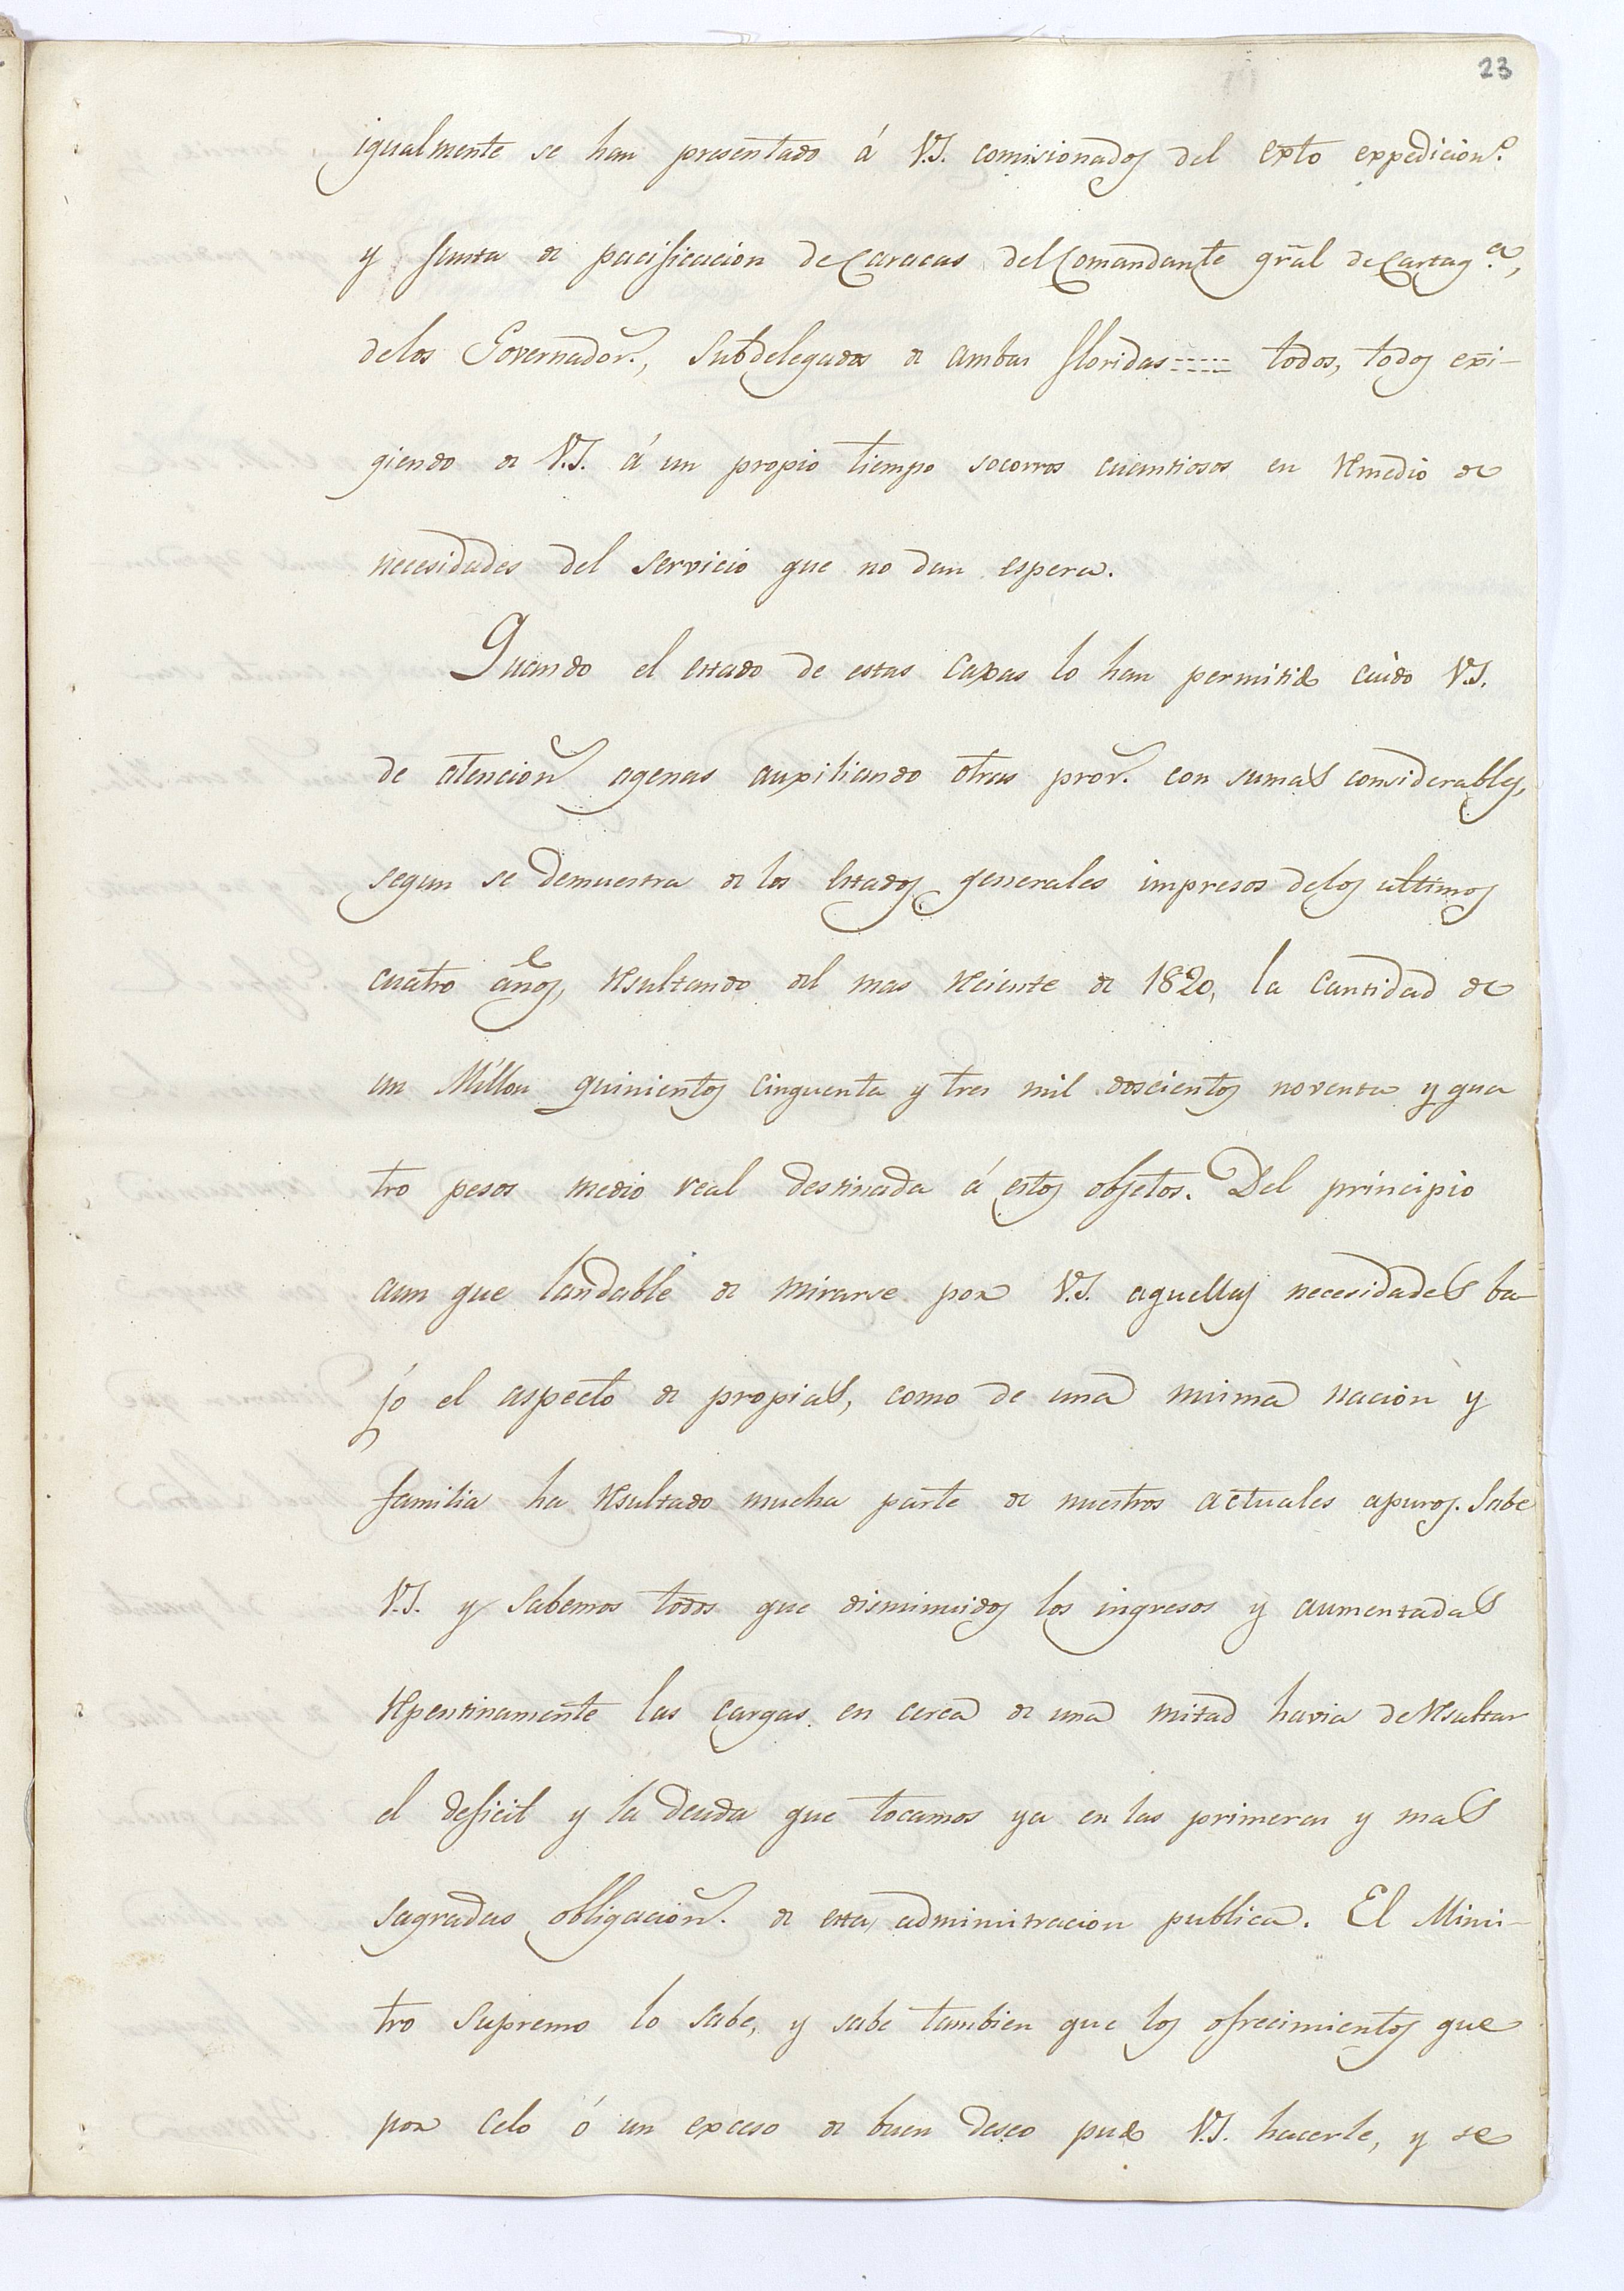 23
igualmente se han presentado á V.S. comisionados del exto expedicion.o
y Junta de pacificacion de Caracas del Comandante gral de Cartag.a,
delos Governador.s, Subdelegados de ambas floridas::::: todos, todos exi-
giendo de V.S. á un propio tiempo socorros cuantiosos en remedio de
necesidades del servicio que no dan espera.
Quando el estado de estas caxas lo han permitido cuido V.S.
de atencion.s agenas auxiliando otras prov.s con sumas considerables,
segun se demuestra de los Estados generales impresos delos ultimos
cuatro años, resultando del mas reciente de 1820, la cantidad de
un Millon quinientos cinquenta y tres mil doscientos noventa y qua
tro pesos medio real destinada á estos objetos. Del principio
aun que laudable de mirarse por V.S. aquellas necesidades ba-
jo el aspecto de propias, como de una misma nacion y
familia ha resultado mucha parte de nuestros actuales apuros. Sabe
V.S. y sabemos todos que disminuidos los ingresos y aumentadas
repentinamente las cargas en cerca de una mitad havia de resultar
el deficit y la deuda que tocamos ya en las primeras y mas
sagradas obligacion.s de esta administracion publica. El Minis-
tro Supremo lo sabe, y sabe tambien que los ofrecimientos que
por celo ó un exceso de buen deseo pudo V.S. hacerle, y se